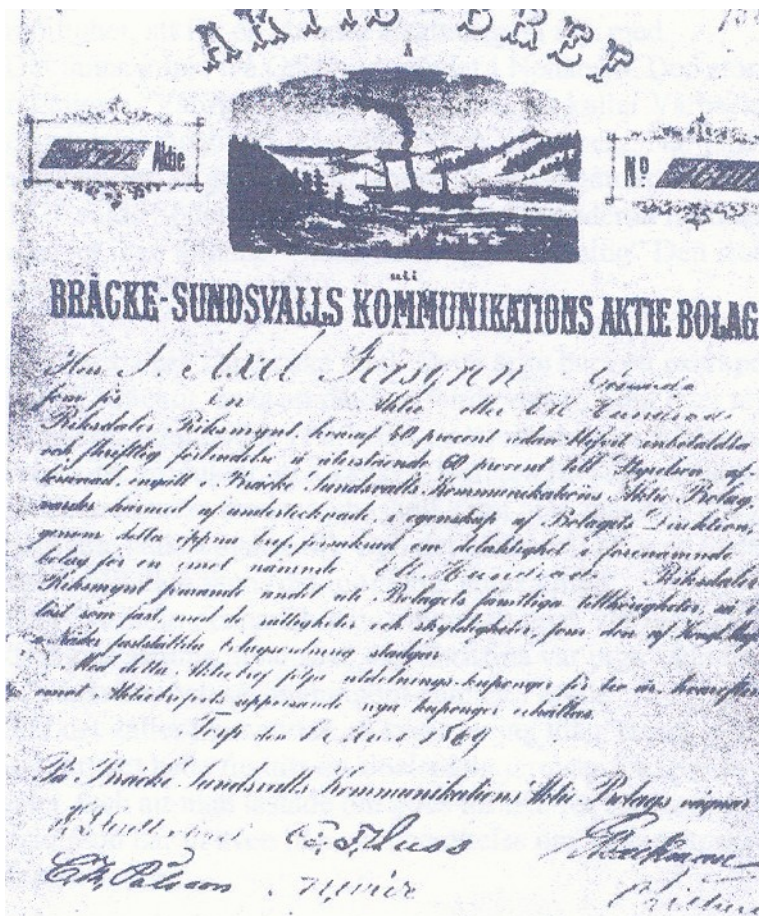 AKTIE BREF
Å
Aktie
No
uti
BRÄCKE-SUNDSVALLS KOMMUNIKATIONS AKTIE BOLAG
Herr J. Axel Forsgren
som för en Aktie eller Ett Hundrade
Riksdaler Riksmynt, hvaraf 40 procent redan blifvit inbetalda
och skriftlig förbindelse å återstående 60 procent till Styrelsen af-
lemnad, ingått i Bräcke Sundsvalls Kommunikations Aktie Bolag,
varder härmed af undertecknade, i egenskap af Bolagets Direktion,
genom detta öppna bref, försäkrad om delaktighet i förenämnde
bolag för en emot nämnde Ett Hundrade Riksdaler
Riksmynt svarande andel uti Bolagets samtliga tillhörigheter, så i
löst som fast, med de rättigheter och skyldigheter, som den af Kongl. Maj:t
i Nåder fastställda bolagsordning stadgar.
Med detta Aktiebref följa utdelnings-kuponger för tio år, hvarefter
emot Aktiebrefvets uppvisande nya kuponger erhållas.
Torp den 1869
På Bräcke Sundsvalls Kommunikations Aktie Bolags vägnar